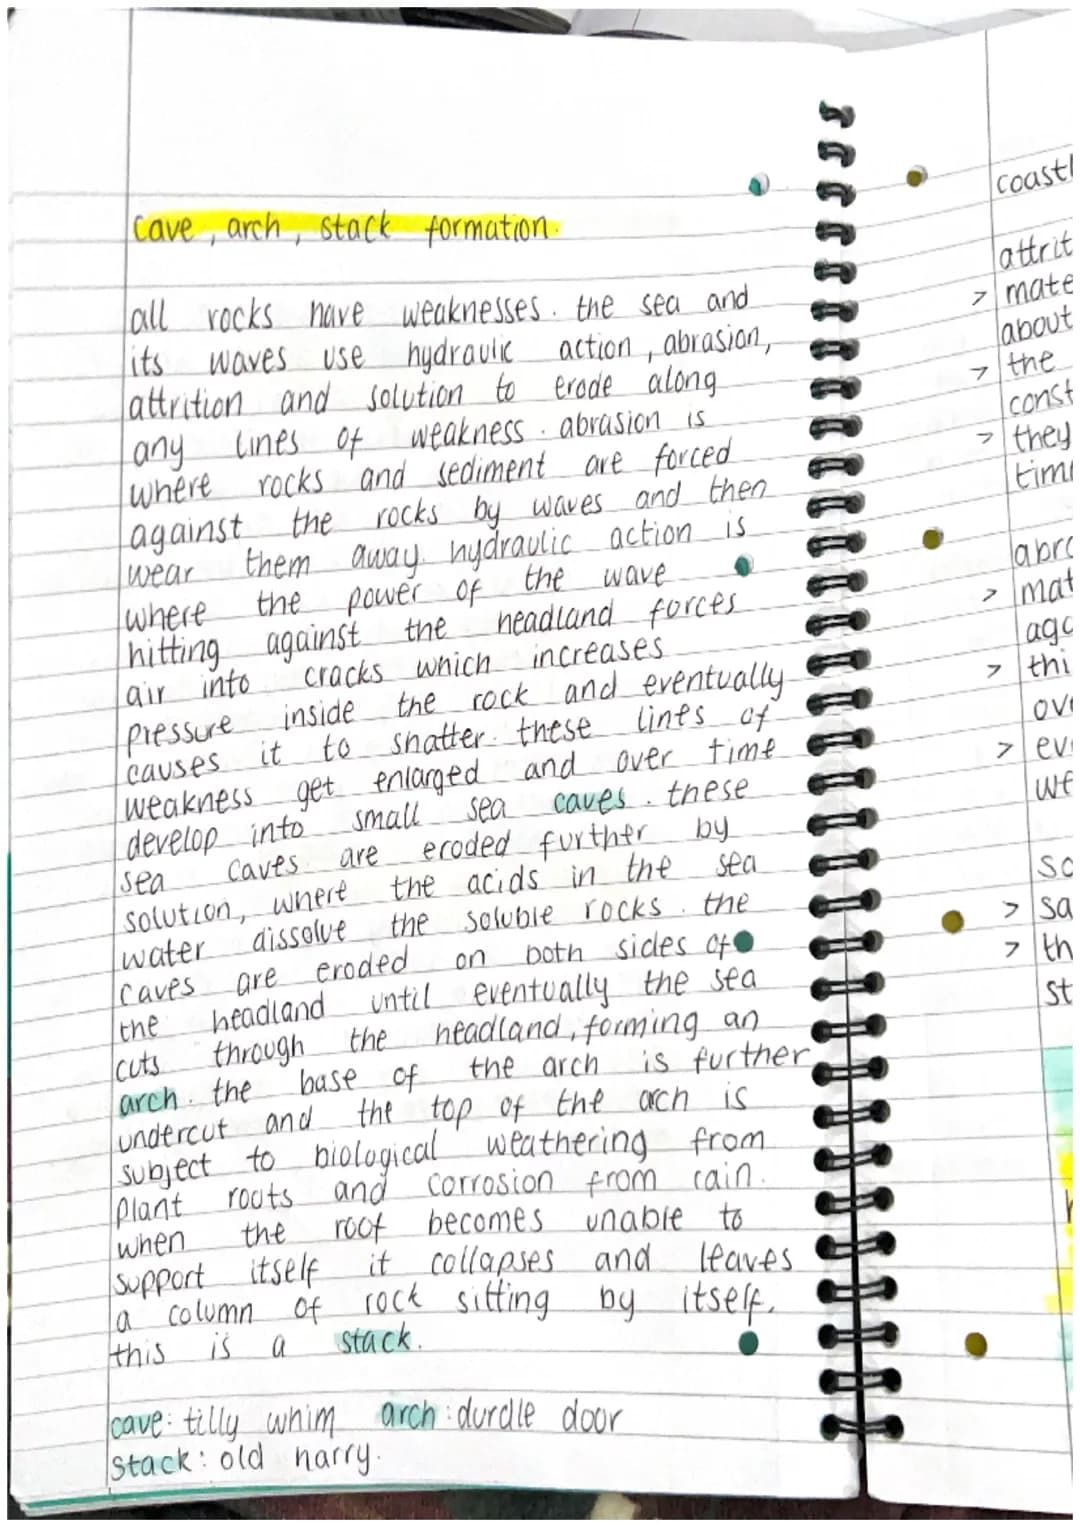 cave, arch, stack formation.
all rocks have weaknesses. the sea and
its waves use hydraulic action, abrasion,
attrition and solution to erode along
any lines of weakness. abrasion is
where rocks and sediment are forced
against the rocks by waves and then
wear them away. hydraulic action is
where the power of the wave
hitting against the headland forces
air into cracks which increases
pressure inside the rock and eventually
causes it to shatter. these lines of
weakness get enlarged and over time
develop into small sea caves. these
sea caves are eroded further by
solution, where the acids in the sea
water dissolve the soluble rocks. the
caves are eroded on both sides of
the headland until eventually the sea
cuts through the headland, forming an
arch. the base of the arch is further
undercut and the top of the arch is
subject to biological weathering from
plant roots and corrosion from rain.
when the roof becomes unable to
support itself it collapses and leaves
a column of rock sitting by itself.
this is a stack.
cave: tilly whim arch: durdle door
stack: old harry.
coastl
attrit
> mate
about
> the
const
> they
tim
abra
> mat
aga
> thi
ov
> ev
we
so
> sa
> th
st